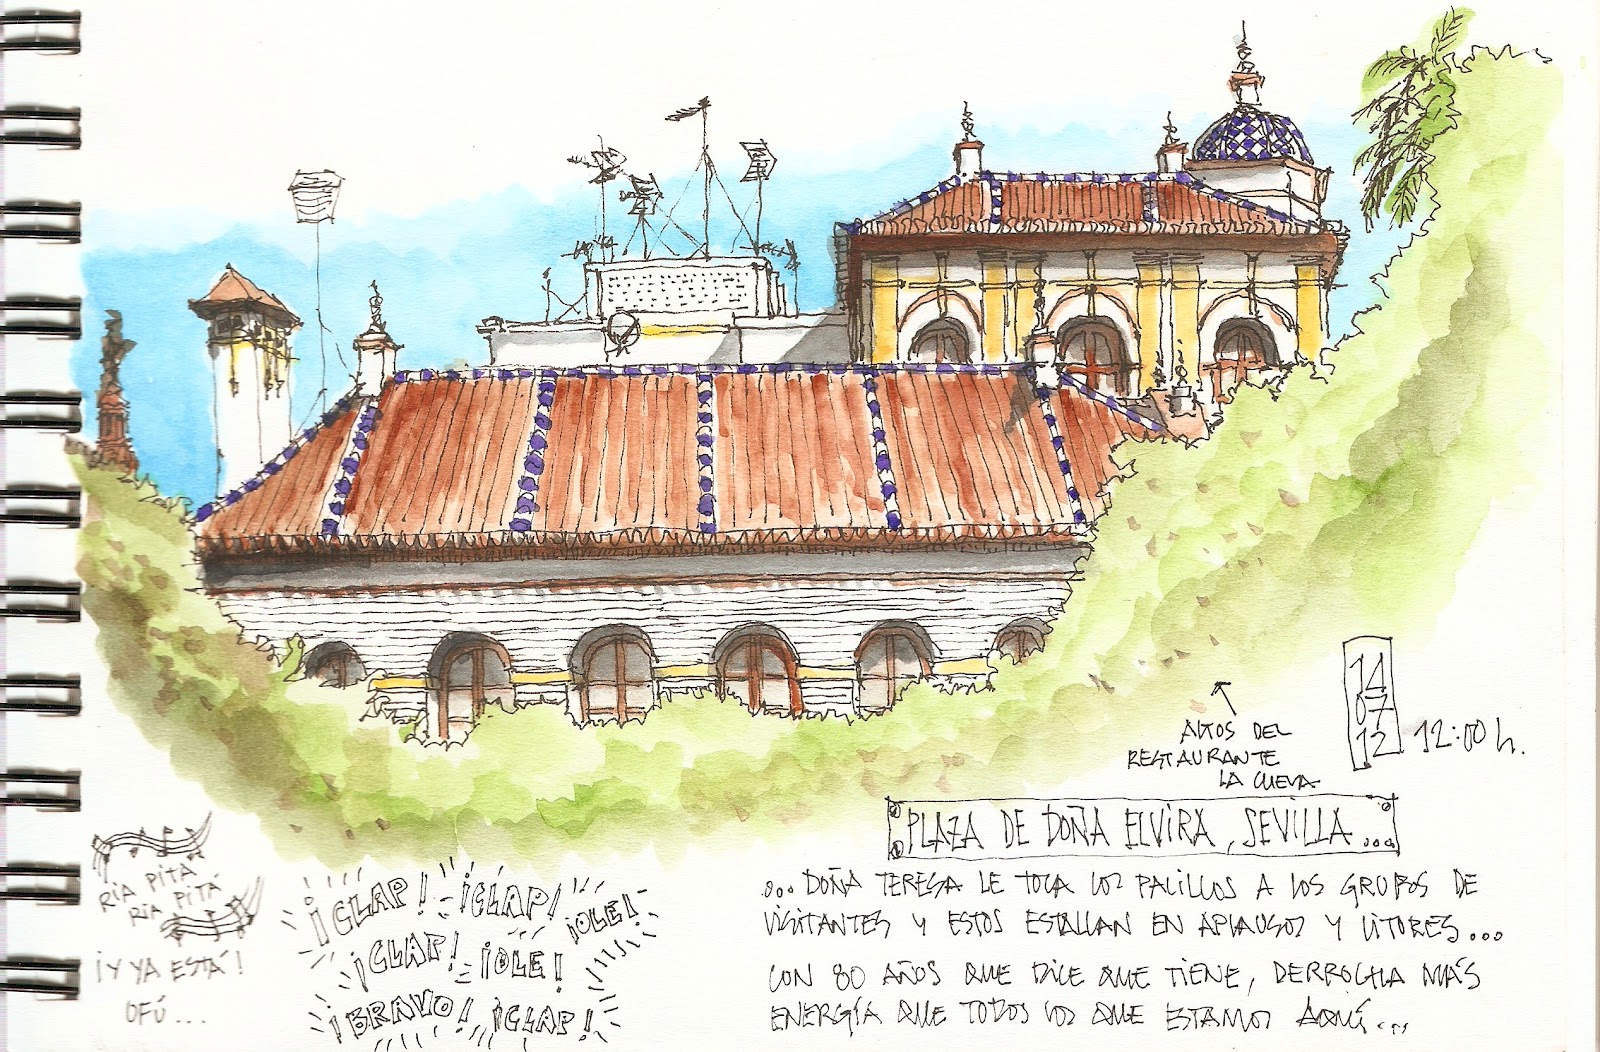 14
07
12
12:00 h.
ALTOS DEL
RESTAURANTE
LA CUEVA
PLAZA DE DOÑA ELVIRA, SEVILLA...
...DOÑA TERESA LE TOCA LOS PALILLOS A LOS GRUPOS DE
VISITANTES Y ESTOS ESTALLAN EN APLAUSOS Y VITORES...
CON 80 AÑOS QUE DICE QUE TIENE, DERROCHA MÁS
ENERGÍA QUE TODOS LOS QUE ESTAMOS AQUÍ...
RIA PITA
RIA PITÁ
¡Y YA ESTÁ!
OFÚ...
¡CLAP! ¡CLAP!
¡OLE!
¡CLAP! ¡OLE!
¡BRAVO! ¡CLAP!